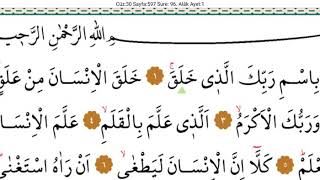 Cüz:30 Sayfa:597 Sure: 96. Alâk Ayet:1
مِ اللّٰهِ الرَّحْمٰنِ الرَّحٖيمِ
بِاسْمِ رَبِّكَ الَّذٖي خَلَقَۚ ١ خَلَقَ الْاِنْسَانَ مِنْ عَلَقٍ
وَرَبُّكَ الْاَكْرَمُۙ ٣ اَلَّذٖي عَلَّمَ بِالْقَلَمِۙ ٤ عَلَّمَ الْاِنْسَا
عْلَمْؕ ٥ كَلَّٓا اِنَّ الْاِنْسَانَ لَيَطْغٰىۙ ٦ اَنْ رَاٰهُ اسْتَغْنٰى